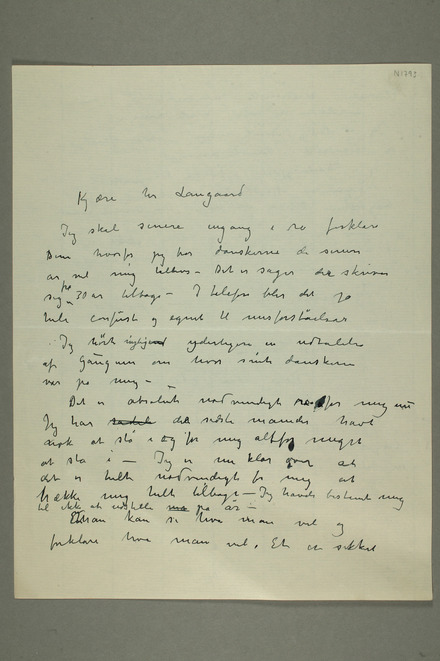 N 1393
Kjære hr Langaard
Jeg skal senere engang i ro forklare
Dem hvorfor jeg har danskerne de senere
år mig – Det er sager der skriver
sig på 30 år tilbage – I telefon blir det jo
helt confust og egnet til misforståelser
Jeg hørte yderligere en udtalelse
af Gauguin om hvor sinte danskerne
var på mig –
Det er absolut nødvendigt for mig nu
Jeg har de sidste måneder havt
nok at stå i og for mig altfor meget
at stå i – Jeg er nu klar over at
det er helt nødvendigt for mig at
trække mig helt tilbage – Jeg havde bestemt mig
til ikke at udstille på år –
Man kan si hva man vil og
forklare hva man vil. Et er sikkert